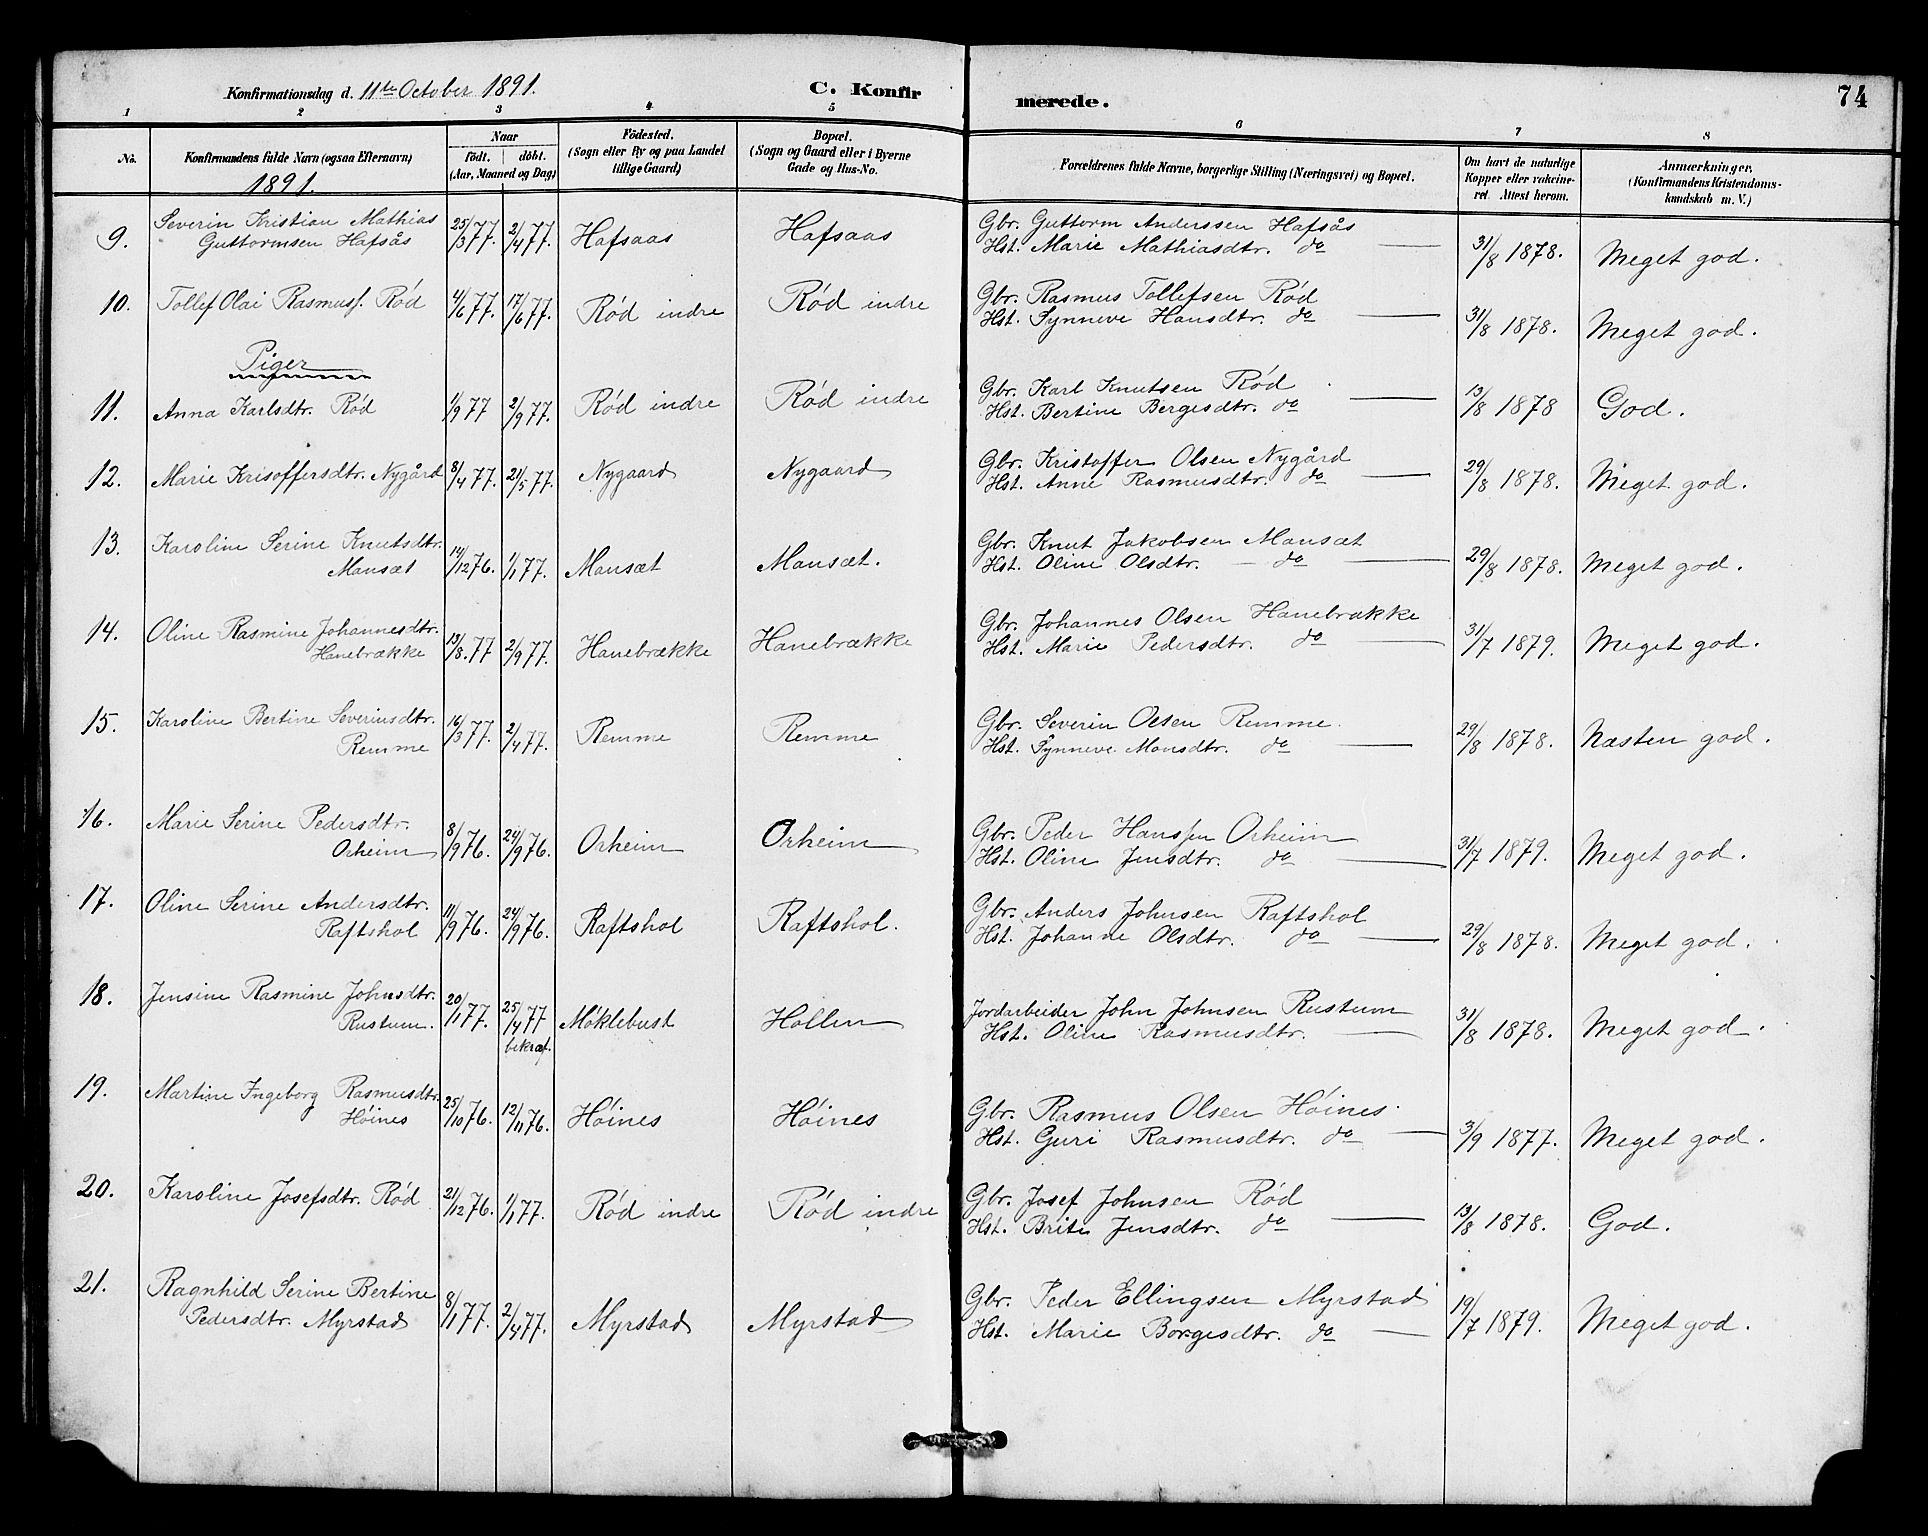 Konfirmationsdag d. 11te October 1891.
C. Konfirmerede.
74
1 2 3 4 5 6 7 8
No.
Konfirmandens fulde Navn (ogsaa Efternavn)
1891.
Naar
födt. döbt.
(Aar, Maaned og Dag)
Födested.
(Sogn eller By og paa Landet
tillige Gaard)
Bopæl.
(Sogn og Gaard eller i Byerne
Gade og Hus-No.
Forældrenes fulde Navne, borgerlige Stilling (Næringsvei) og Bopæl.
Om havt de naturlige
Kopper eller vakcine-
ret Attest herom.
Anmærkninger.
(Konfirmandens Kristendoms-
kundskab m. V.)
9. Severin Kristian Mathias
Guttormsen Hafsås 25/3 77. 2/4 77. Hafsaas Hafsaas
Gbr. Guttorm Anderssen Hafsås
Hst. Marie Mathiasdtr. do 31/8 1878. Meget god.
10. Tollef Olai Rasmuss. Rød 4/6 77. 17/6 77. Rød indre Rød indre
Gbr. Rasmus Tollefsen Rød
Hst. Synneve Hansdtr. do 31/8 1878. Meget god.
Piger
11. Anna Karlsdtr. Rød 1/9 77 2/9 77. Rød indre Rød indre
Gbr. Karl Knutsen Rød
Hst. Bertine Bergesdtr. do 13/8 1878 God.
12. Marie Krisoffersdtr. Nygård 8/4 77. 21/5 77. Nygaard Nygaard
Gbr. Kristoffer Olsen Nygård
Hst. Anne Rasmusdtr. do 29/8 1878. Meget god.
13. Karoline Serine Knutsdtr.
Mansæt 14/12 76. 1/1 77. Mansæt Mansæt.
Gbr. Knut Jakobsen Mansæt
Hst. Oline Olsdtr. do 29/8 1878. Meget god.
14. Oline Rasmine Johannesdtr.
Hanebrække 13/8. 77 2/9 77. Hanebrække Hanebrække
Gbr. Johannes Olsen Hanebrække
Hst. Marie Pedersdtr. do 31/7 1879. Meget god.
15. Karoline Bertine Severinsdtr.
Remme 16/3 77. 2/4 77. Remme Remme
Gbr. Severin Olsen Remme.
Hst. Synneve Monsdtr. do 29/8 1878. Næsten god.
16. Marie Serine Pedersdtr.
Orheim 8/9 76. 24/9 76. Orheim Orheim
Gbr. Peder Hanssen Orheim
Hst. Oline Jensdtr. do 31/7 1879. Meget god.
17. Oline Serine Andersdtr.
Raftshol 11/9 76. 24/9 76. Raftshol Raftshol.
Gbr. Anders Johnsen Raftshol
Hst. Johanne Olsdtr. do 29/8 1878. Meget god.
18. Jensine Rasmine Johnsdtr.
Rustum. 20/1 77. 25/4 77 bekræf. Møklebust Hollen
Jordarbeider John Johnsen Rustum
Hst. Oline Rasmusdtr. 31/8 1878. Meget god.
19. Martine Ingeborg Rasmusdtr.
Høines 25/10 76. 12/11 76. Høines Høines
Gbr. Rasmus Olsen Høines.
Hst. Guri Rasmusdtr. do 3/9 1877. Meget god.
20. Karoline Josefsdtr. Rød 21/12 76. 1/1 77. Rød indre Rød indre
Gbr. Josef Johnsen Rød
Hst. Brite Jensdtr. do 13/8 1878. God.
21. Ragnhild Serine Bertine
Pedersdtr. Myrstad 8/1 77. 2/4 77. Myrstad Myrstad
Gbr. Peder Ellingsen Myrstad
Hst. Marie Borgesdtr. do 19/7 1879. Meget god.